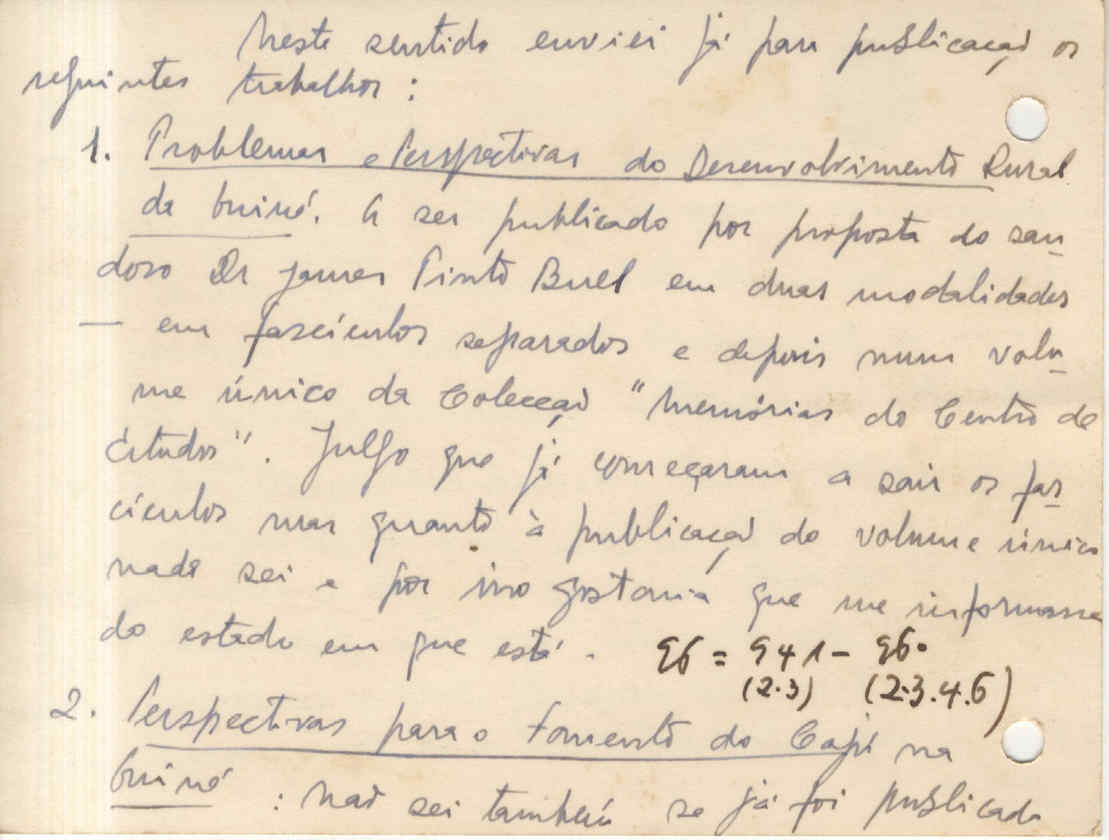 Neste sentido enviei já para publicação os
seguintes trabalhos :
1. Problemas e Perspectivas do Desenvolvimento Rural
da Guiné. A ser publicado por proposta do sau-
doso Dr James Pinto Bull em duas modalidades
— em fascículos separados e depois num volu-
me único da Colecção "Memórias do Centro de
Estudos". Julgo que já começaram a sair os fas-
cículos mas quanto à publicação do volume único
nada sei e por isso gostaria que me informasse
do estado em que está.
= 941 -
(2.3) (2.3.4.6)
2. Perspectivas para o fomento do Café na
Guiné : Não sei também se já foi publicado